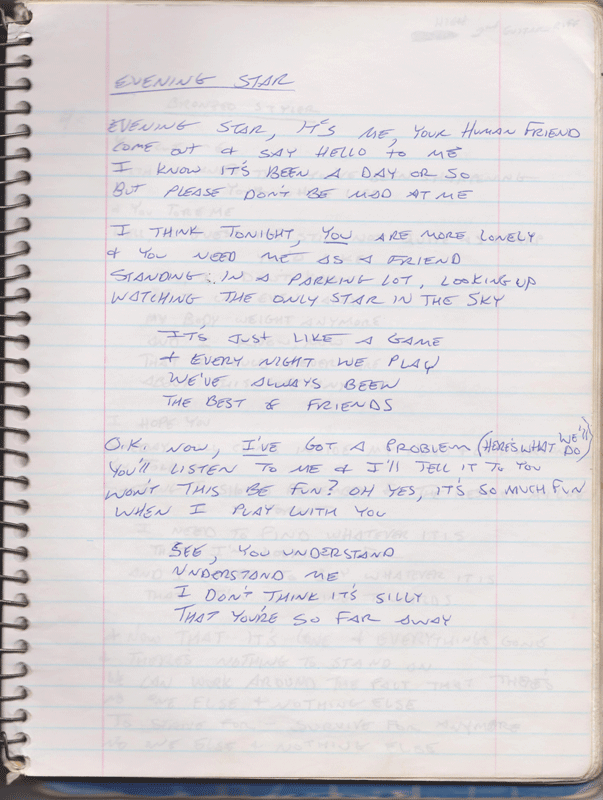 EVENING STAR
EVENING STAR, IT'S ME, YOUR HUMAN FRIEND
COME OUT & SAY HELLO TO ME
I KNOW IT'S BEEN A DAY OR SO
BUT PLEASE DON'T BE MAD AT ME
I THINK TONIGHT, YOU ARE MORE LONELY
& YOU NEED ME AS A FRIEND
STANDING IN A PARKING LOT, LOOKING UP
WATCHING THE ONLY STAR IN THE SKY
IT'S JUST LIKE A GAME
& EVERY NIGHT WE PLAY
WE'VE ALWAYS BEEN
THE BEST OF FRIENDS
O.K. NOW, I'VE GOT A PROBLEM (HERE'S WHAT WE'LL DO)
YOU'LL LISTEN TO ME & I'LL TELL IT TO YOU
WON'T THIS BE FUN? OH YES, IT'S SO MUCH FUN
WHEN I PLAY WITH YOU
SEE, YOU UNDERSTAND
UNDERSTAND ME
I DON'T THINK IT'S SILLY
THAT YOU'RE SO FAR AWAY